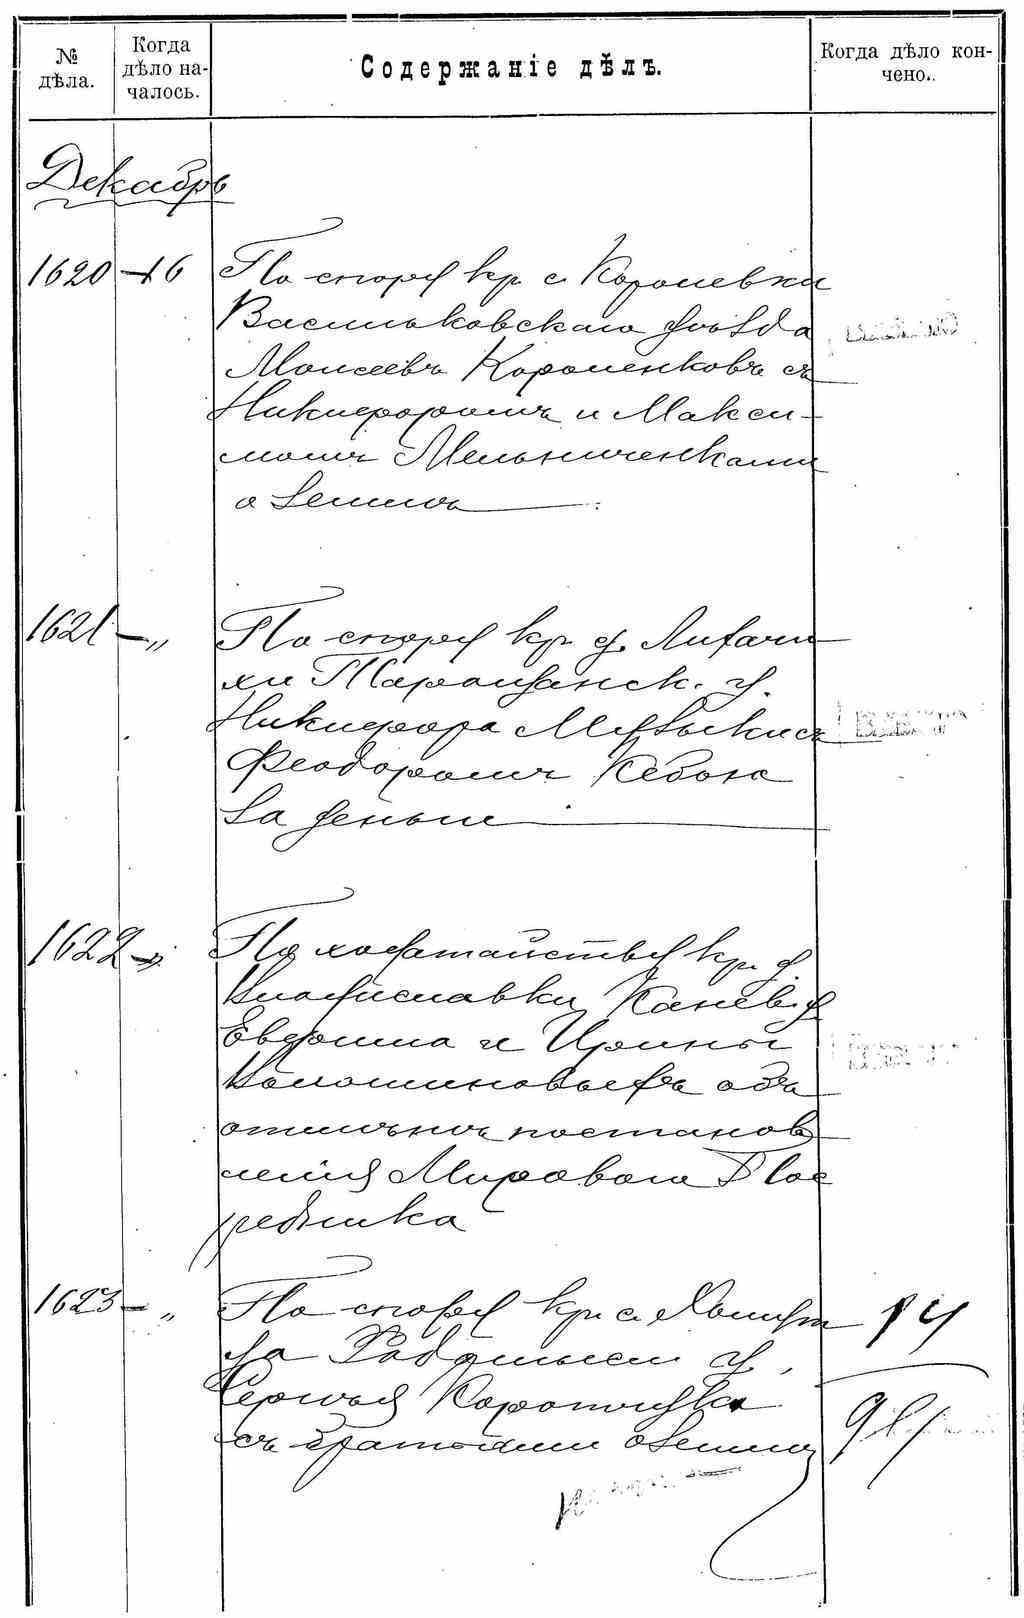 № дѣла.
Когда дѣло началось.
Содержаніе дѣлъ.
Когда дѣло кончено.
Декабрь
1620 16 По спору кр. с. Королевки
Васильковскаго уѣзда
Моисеевъ Короленковъ съ
Никифоромъ и Макси-
момъ Мельниченками
о землѣ
1621 — „ По спору кр. д. Лихачи-
хи Таращанск. у.
Никифора съ
Феодоромъ
за деньги
1622 — „ По ходатайству кр. д.
Владиславки Канев. у.
Евфима и Ирины
Волошиновыхъ объ
отмѣнѣ постанов
ленія Мироваго Пос
редника
1623 — „ По спору кр. с.
Радомысл. у.
Сергѣя Коротчука
съ братьями о землѣ
14